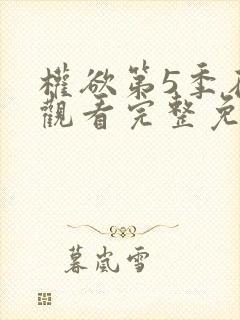 權欲第5季在
觀看完整免
暮嵐雪